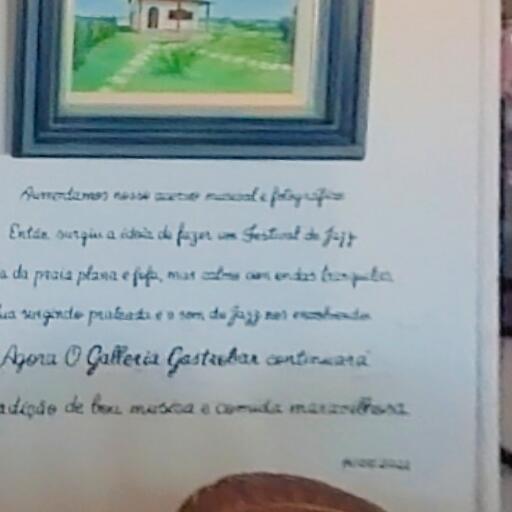 Aumentamos nosso acervo musical e fotográfico
Então surgiu a ideia de fazer um Festival de Jazz
da praia plana e fofa, mar calmo com ondas tranquilas
ua surgindo prateada e o som do Jazz nos envolvendo
Agora O Galleria Gastrobar continuará
adição de boa musica e comida maravilhosa